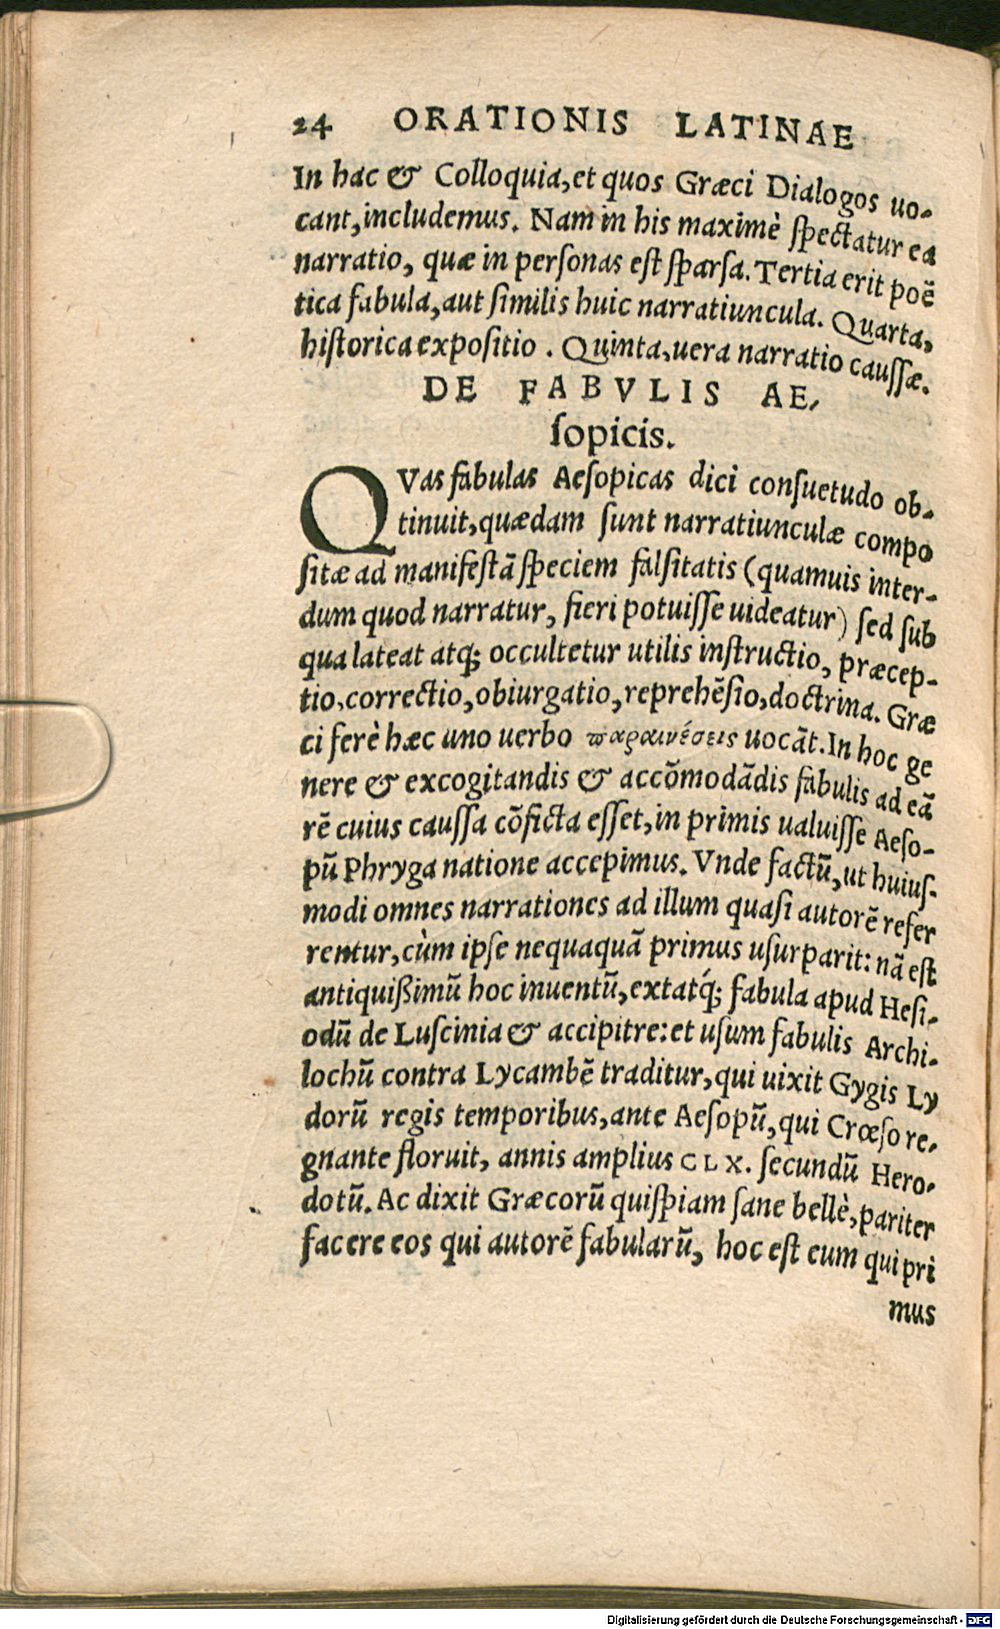 24 ORATIONIS LATINAE
In hac & Colloquia, et quos Græci Dialogos uo-
cant, includemus. Nam in his maximè ſpectatur ea
narratio, quæ in perſonas eſt ſparſa. Tertia erit poë
tica fabula, aut ſimilis huic narratiuncula. Quarta,
hiſtorica expoſitio. Quinta, uera narratio cauſſæ.
DE FABVLIS AE-
ſopicis.
QVas fabulas Aeſopicas dici conſuetudo ob-
tinuit, quædam ſunt narratiunculæ compo
ſitæ ad manifeſtā ſpeciem falſitatis (quamuis inter-
dum quod narratur, fieri potuiſſe uideatur) ſed ſub
qua lateat atq; occultetur utilis inſtructio, præcep-
tio, correctio, obiurgatio, reprehēſio, doctrina. Græ
ci ferè hæc uno uerbo παραινέσεις uocāt. In hoc ge
nere & excogitandis & accōmodādis fabulis ad eā
rē cuius cauſſa cōficta eſſet, in primis ualuiſſe Aeſo-
pū Phryga natione accepimus. Vnde factū, ut huiuſ-
modi omnes narrationes ad illum quaſi autorē refer
rentur, cùm ipſe nequaquā primus uſurparit: nā eſt
antiquißimū hoc inuentū, extatq́; fabula apud Heſi-
odū de Luſcinia & accipitre: et uſum fabulis Archi-
lochū contra Lycambē traditur, qui uixit Gygis Ly
dorū regis temporibus, ante Aeſopū, qui Crœſo re-
gnante floruit, annis amplius CLX. ſecundū Hero-
dotū. Ac dixit Græcorū quiſpiam ſane bellè, pariter
facere eos qui autorē fabularū, hoc eſt eum qui pri
mus
Digitalisierung gefördert durch die Deutsche Forschungsgemeinschaft - DFG